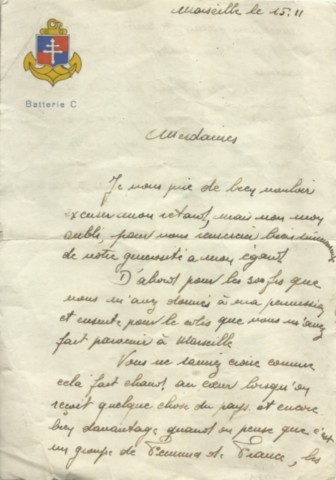 Marseille le 15.11
Batterie C
Mesdames
Je vous prie de bien vouloir
excuser mon retard, mais non mon
oubli, pour vous remercier bien
de votre générosité a mon égard
D'abord pour les 300 frs que
vous m'avez donnés à ma permission
et ensuite pour le colis que vous m'avez
fait parvenir à Marseille
Vous ne sauriez croire comme
cela fait chaud au cœur lorsqu'on
reçoit quelque chose du pays et encore
bien davantage quand on pense que c'est
un groupe de Femmes de France, les